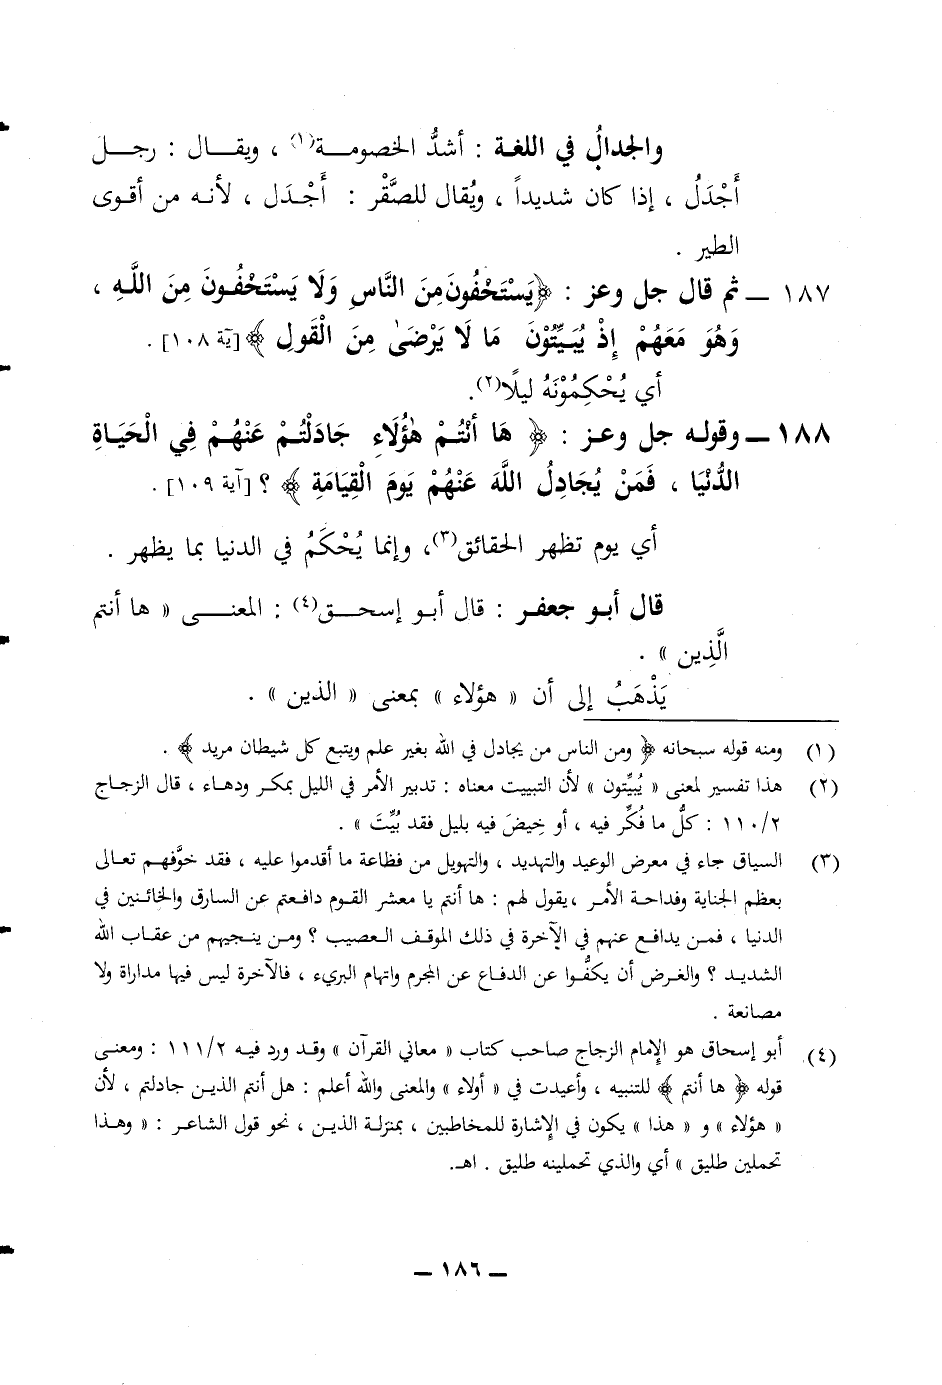 والجدالُ في اللغة : أشدُّ الخصومة(١) ، ويقال : رجل
أَجْدَلُ ، إذا كان شديداً ، ويُقال للصَّقْر : أَجْدَل ، لأنه من أقوى
الطير .
١٨٧ ــ ثم قال جل وعز : ﴿يَسْتَخْفُونَ مِنَ النَّاسِ وَلَا يَسْتَخْفُونَ مِنَ اللَّهِ ،
وَهُوَ مَعَهُمْ إِذْ يُبَيِّتُوْنَ مَا لَا يَرْضَىٰ مِنَ الْقَولِ ﴾ [آية ١٠٨] .
أي يُحْكِمُوْنَهُ ليلًا(٢).
١٨٨ ــ وقوله جل وعز : ﴿ هَا أَنْتُمْ هٰؤُلَاءِ جَادَلْتُمْ عَنْهُمْ فِي الْحَيَاةِ
الدُّنْيَا ، فَمَنْ يُجَادِلُ اللَّهَ عَنْهُمْ يَومَ الْقِيَامَةِ ﴾ ؟ [آية ١٠٩] .
أي يوم تظهر الحقائق(٣)، وإنما يُحْكَمُ في الدنيا بما يظهر .
قال أبو جعفر : قال أبو إسحق(٤) : المعنى « ها أنتم
الَّذِين » .
يَذْهَبُ إلى أن « هؤلاء » بمعنى « الذين » .
(١) ومنه قوله سبحانه ﴿ ومن الناس من يجادل في الله بغير علم ويتبع كل شيطان مريد ﴾ .
(٢) هذا تفسير لمعنى « يُبيِّتون » لأن التبييت معناه : تدبير الأمر في الليل بمكر ودهاء ، قال الزجاج
١١٠/٢ : كلُّ ما فُكِّر فيه ، أو خِيضَ فيه بليل فقد بُيِّتَ » .
(٣) السياق جاء في معرض الوعيد والتهديد ، والتهويل من فظاعة ما أقدموا عليه ، فقد خوَّفهم تعالى
بعظم الجناية وفداحة الأمر ، يقول لهم : ها أنتم يا معشر القوم دافعتم عن السارق والخائنين في
الدنيا ، فمن يدافع عنهم في الآخرة في ذلك الموقف العصيب ؟ ومن ينجيهم من عقاب الله
الشديد ؟ والغرض أن يكفُّوا عن الدفاع عن المجرم واتهام البريء ، فالآخرة ليس فيها مداراة ولا
مصانعة .
(٤) أبو إسحاق هو الإمام الزجاج صاحب كتاب « معاني القرآن » وقد ورد فيه ١١١/٢ : ومعنى
قوله ﴿ ها أنتم ﴾ للتنبيه ، وأعيدت في « أولاء » والمعنى والله أعلم : هل أنتم الذين جادلتم ، لأن
« هؤلاء » و « هذا » يكون في الإشارة للمخاطبين ، بمنزلة الذين ، نحو قول الشاعر : « وهذا
تحملين طليق » أي والذي تحملينه طليق . اهـ.
ــ ١٨٦ ــ